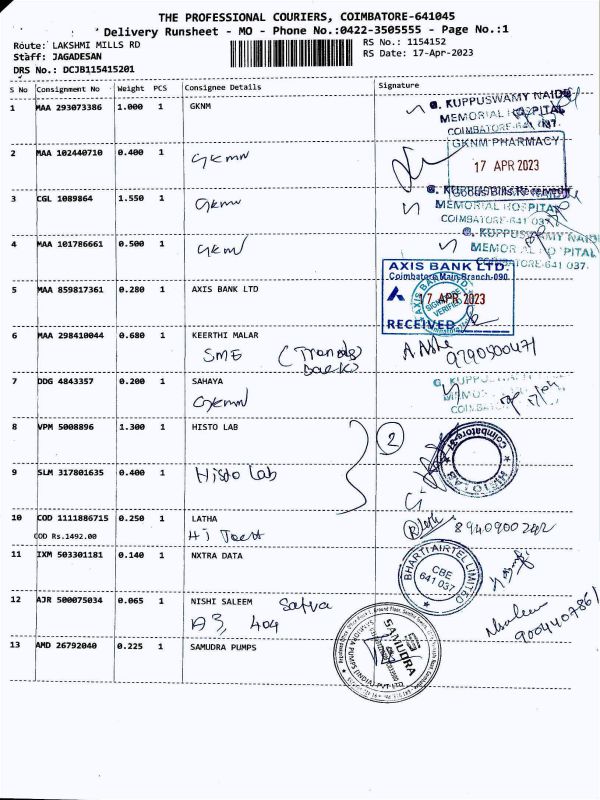 THE PROFESSIONAL COURIERS, COIMBATORE-641045
Delivery Runsheet - MO - Phone No.:0422-3505555 - Page No.:1
Route: LAKSHMI MILLS RD
RS No.: 1154152
Staff: JAGADESAN
RS Date: 17-Apr-2023
DRS No.: DCJB115415201
S No Consignment No Weight PCS Consignee Details Signature
1 MAA 293073386 1.000 1 GKNM
G. KUPPUSWAMY NAIDU
MEMORIAL HOSPITAL
COIMBATORE-641 037.
2 MAA 102440710 0.400 1 GKMN
GKNM PHARMACY
17 APR 2023
Goods Bills Received
3 CGL 1089864 1.550 1 GKMN
G. KUPPUSWAMY NAIDU
MEMORIAL HOSPITAL
COIMBATORE-641 037.
4 MAA 101786661 0.500 1 GKMN
G. KUPPUSWAMY NAIDU
MEMORIAL HOSPITAL
COIMBATORE-641 037.
5 MAA 859817361 0.280 1 AXIS BANK LTD
AXIS BANK LTD.
Coimbatore Main Branch-090
17 APR 2023
SIGNATURE VERIFIED
RECEIVED
6 MAA 298410044 0.680 1 KEERTHI MALAR
SME
7 DDG 4843357 0.200 1 SAHAYA
GKMN
G. KUPPUSWAMY
8 VPM 5008896 1.300 1 HISTO LAB
2
9 SLM 317801635 0.400 1
Histo Lab
Coimbatore-37
HISTO LAB
10 COD 1111886715 0.250 1 LATHA
COD Rs.1492.00
8940900242
11 IXM 503301181 0.140 1 NXTRA DATA
BHARTI AIRTEL LIMITED
CBE
641 037
12 AJR 500075034 0.065 1 NISHI SALEEM
A3, 404
Nsaleem
9004407861
13 AMD 26792040 0.225 1 SAMUDRA PUMPS
SAMUDRA